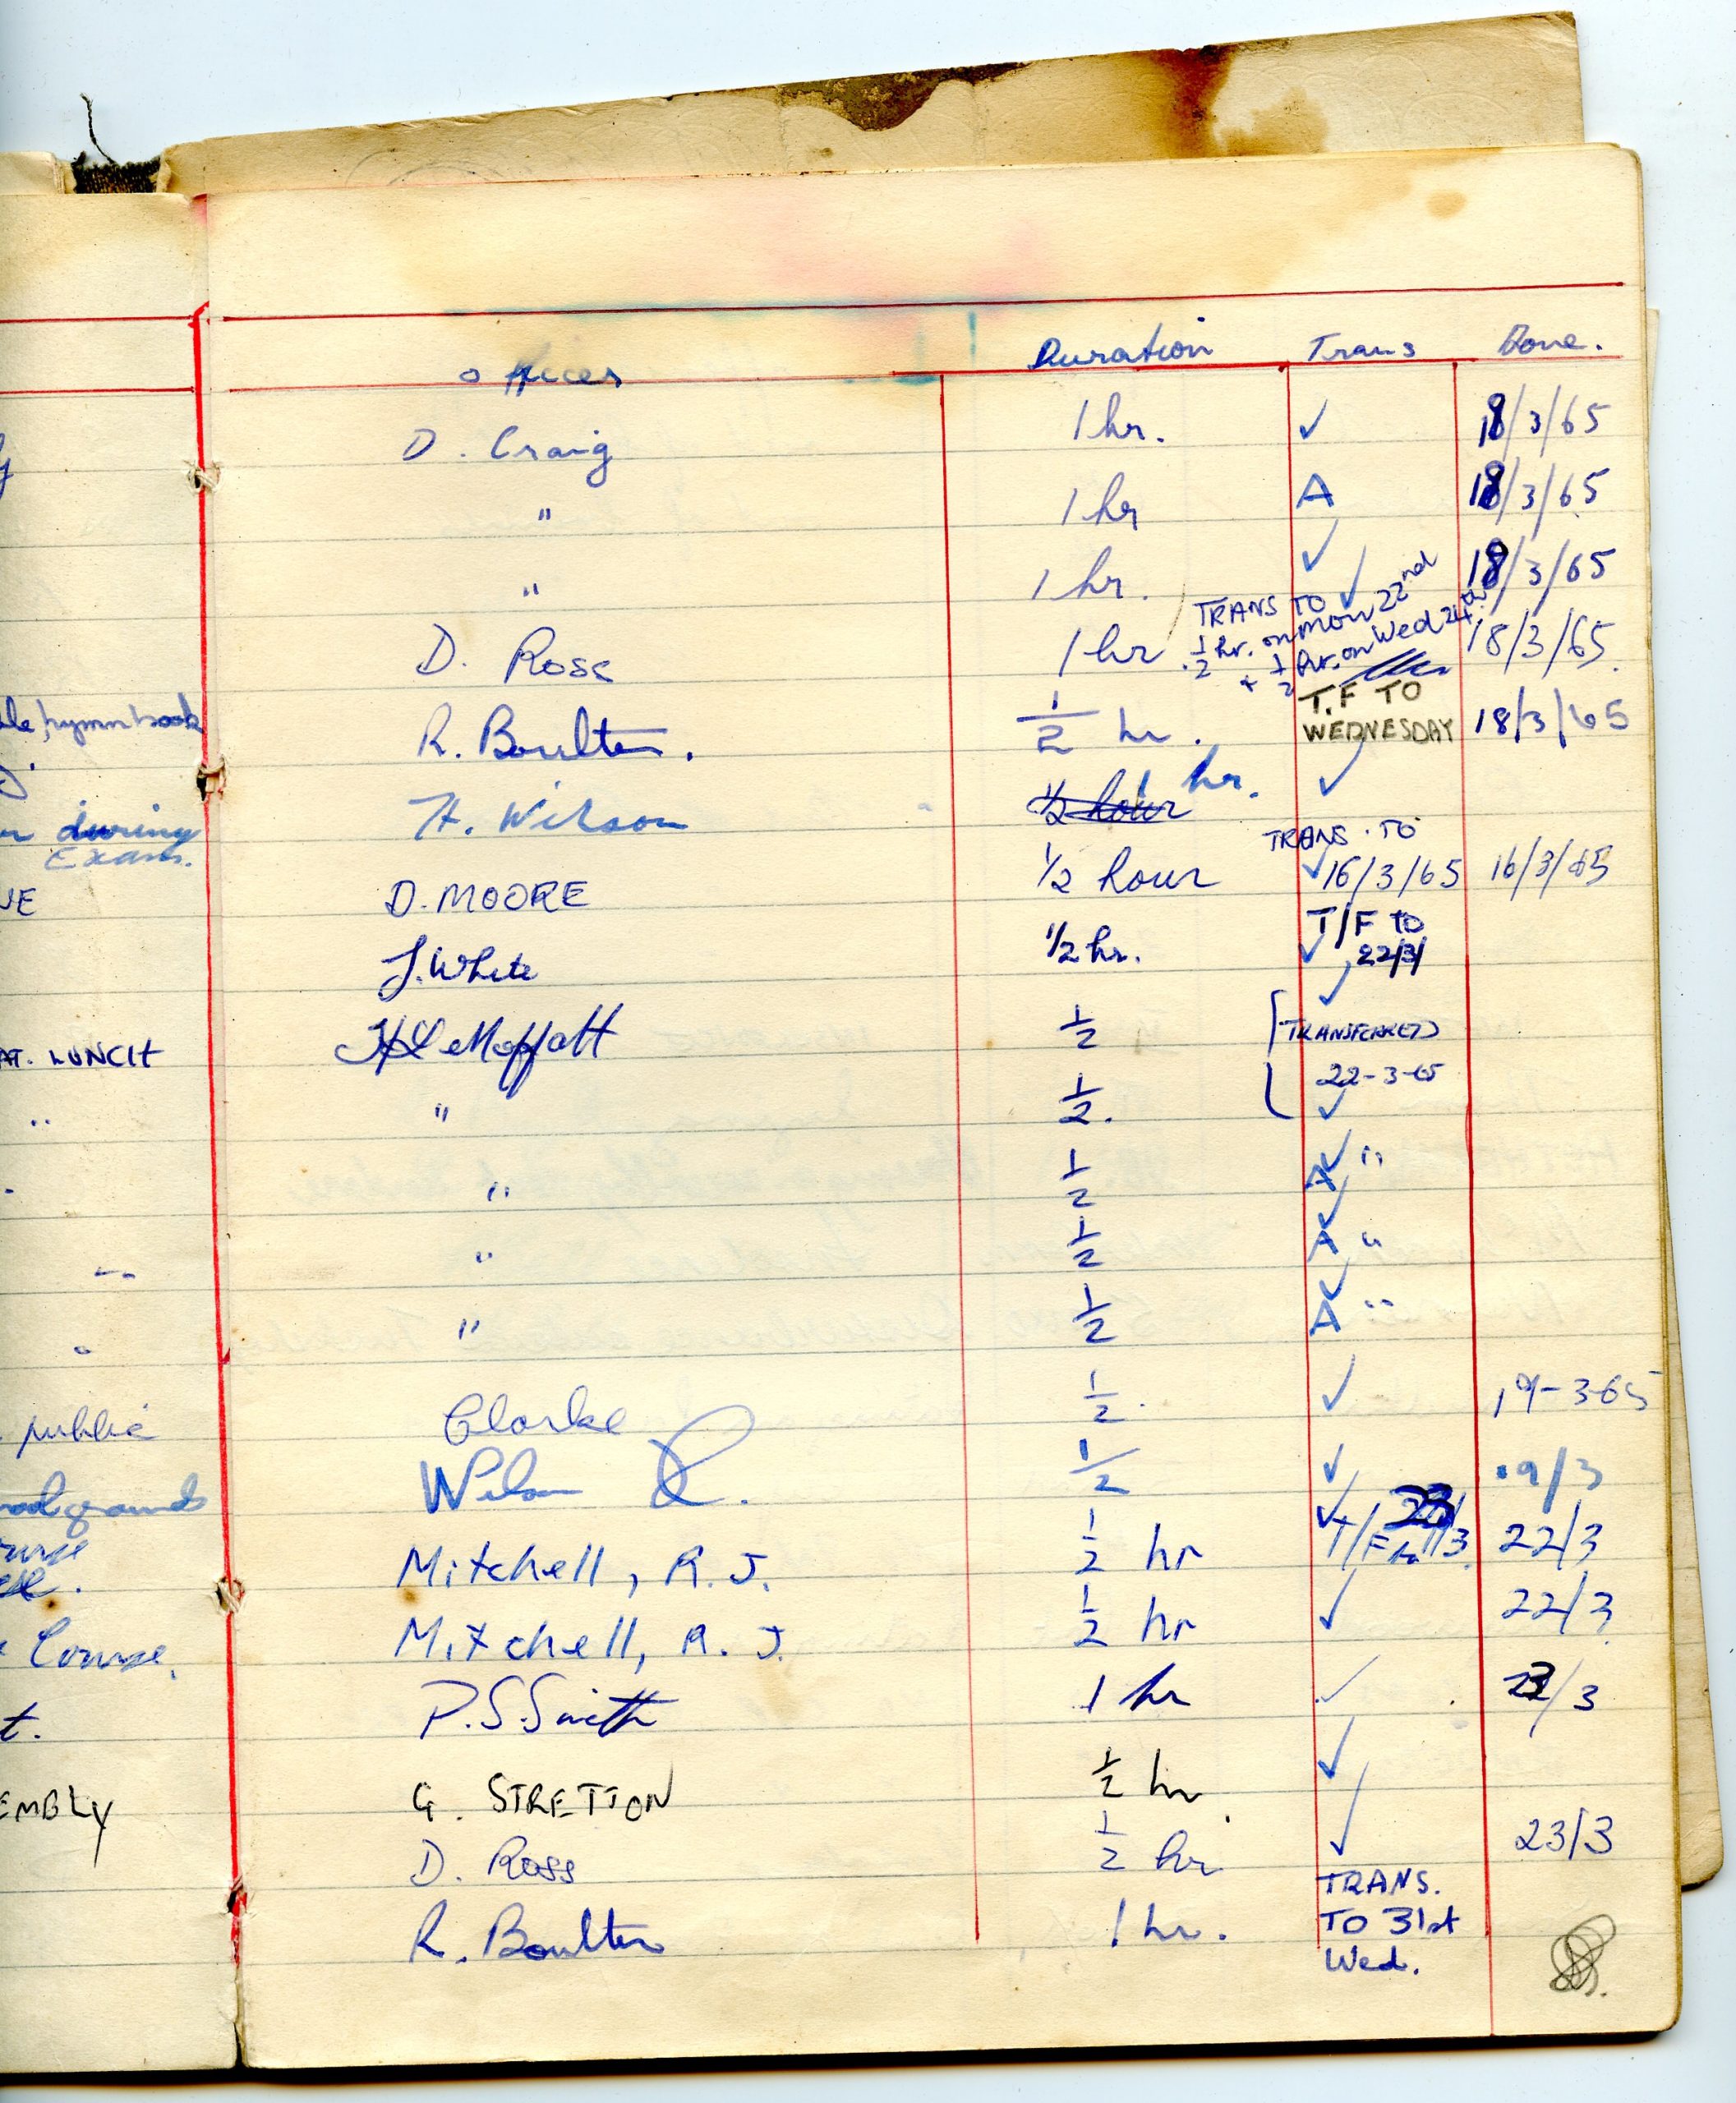 Officer Duration Trans Done.
D. Craig 1 hr. ✓ 18/3/65
" 1 hr A 18/3/65
" 1 hr. ✓ 18/3/65
D. Ross 1 hr. TRANS TO ✓ ½ hr. on Mon 22nd + ½ hr. on Wed 24th 18/3/65
R. Boulter. ½ hr. T.F TO WEDNESDAY 18/3/65
hymn book
H. Wilson ½ hour 1 hr. ✓
during Exam.
D. MOORE ½ hour TRANS. TO ✓ 16/3/65 16/3/65
J. White ½ hr. T/F to ✓ 22/3/
AT. LUNCH Moffatt ½ ✓ TRANSFERRED
" ½. 22-3-65 ✓
" ½ A ✓ "
" ½ A ✓ "
" ½ A ✓ "
public Clarke ½. ✓ 19-3-65
grounds Wilson R. ½ ✓ 19/3
Mitchell, R. J. ½ hr ✓ T/F to 23/3 22/3
Course. Mitchell, R. J. ½ hr ✓ 22/3
t. P. S. Smith 1 hr ✓ /3
EMBLY G. STRETTON ½ hr. ✓
D. Ross ½ hr ✓ 23/3
R. Boulter 1 hr. TRANS. TO 31st Wed.